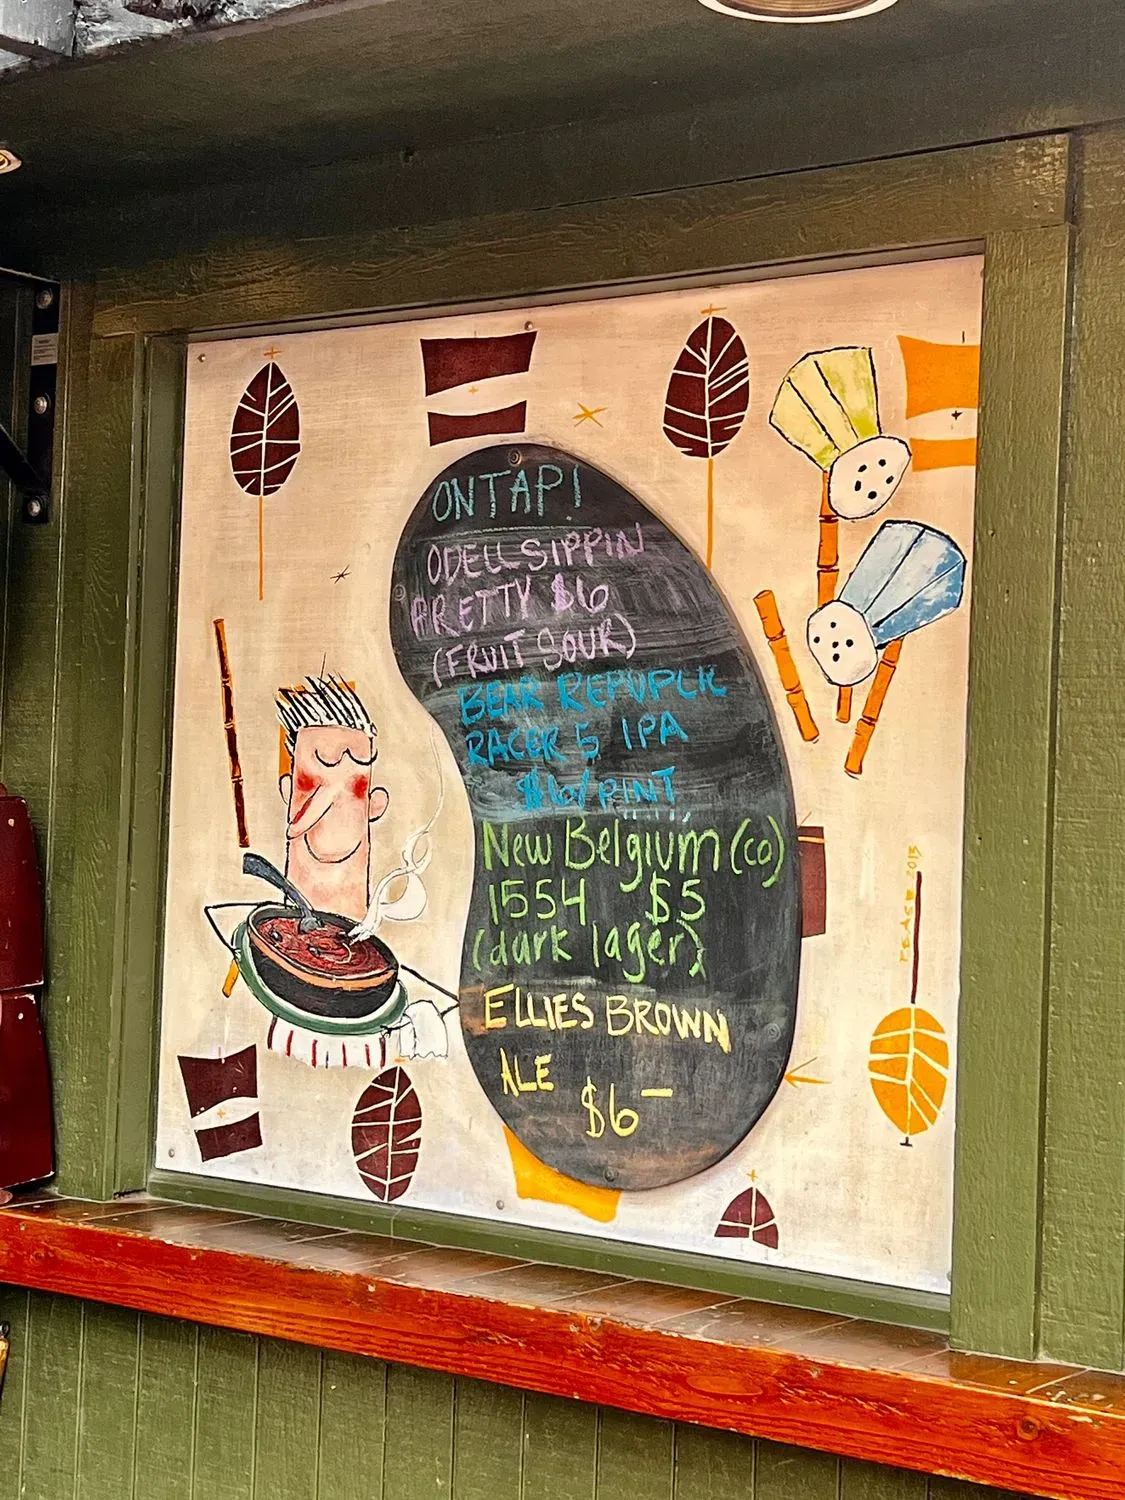 ON TAP!
ODELL SIPPIN
PRETTY $6
(FRUIT SOUR)
BEAR REPUPLIC
RACER 5 IPA
$6/PINT
New Belgium (co)
1554 $5
(dark lager)
ELLIES BROWN
ALE
$6—
PEASE 2013